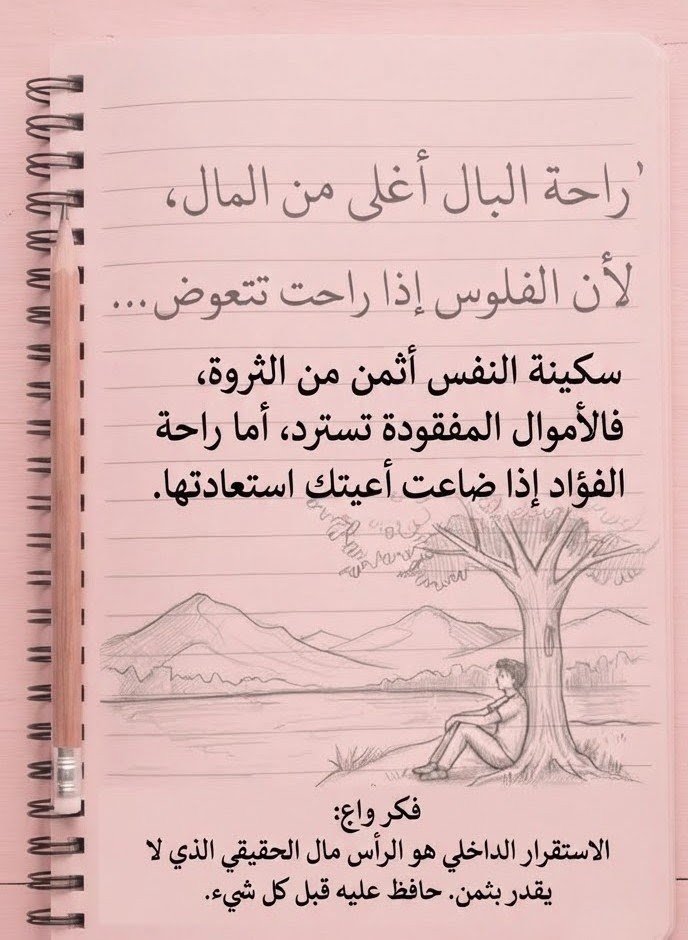 'راحة البال أغلى من المال،
لأن الفلوس إذا راحت تتعوض...
سكينة النفس أثمن من الثروة،
فالأموال المفقودة تسترد، أما راحة
الفؤاد إذا ضاعت أعيتك استعادتها.
فكر واعٍ:
الاستقرار الداخلي هو الرأس مال الحقيقي الذي لا
يقدر بثمن. حافظ عليه قبل كل شيء.